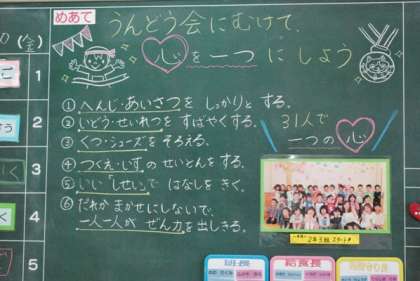 めあて
うんどう会にむけて、
心を一つにしよう
(金)
1
2
3
4
5
①へんじ・あいさつをしっかりとする。
②いどう・せいれつをすばやくする。
③くつ・シューズをそろえる。
④つくえ・いすのせいとんをする。
⑤いい「しせい」ではなしをきく。
⑥だれかまかせにしないで、
一人一人がぜん力を出しきる。
31人で
一つの心
班長
給食長